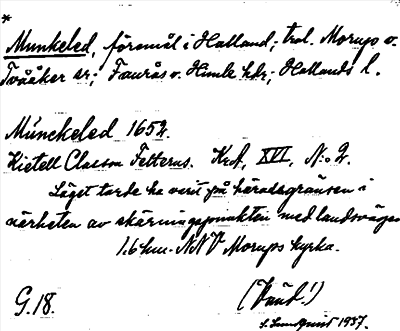 *
Munkeled, föremål i Halland; trol. Morup o.
Tvååker sr; Faurås o. Himle hdr; Hallands l.
Münckeled 1652.
Kietell Classon Fetterus. KrA, XVI, N:o 2.
Läget torde ha varit på häradsgränsen i
närheten av skärningspunkten med landsvägen
1.6 km. NNV Morups kyrka.
G. 18.
S. Lundquist 1937.